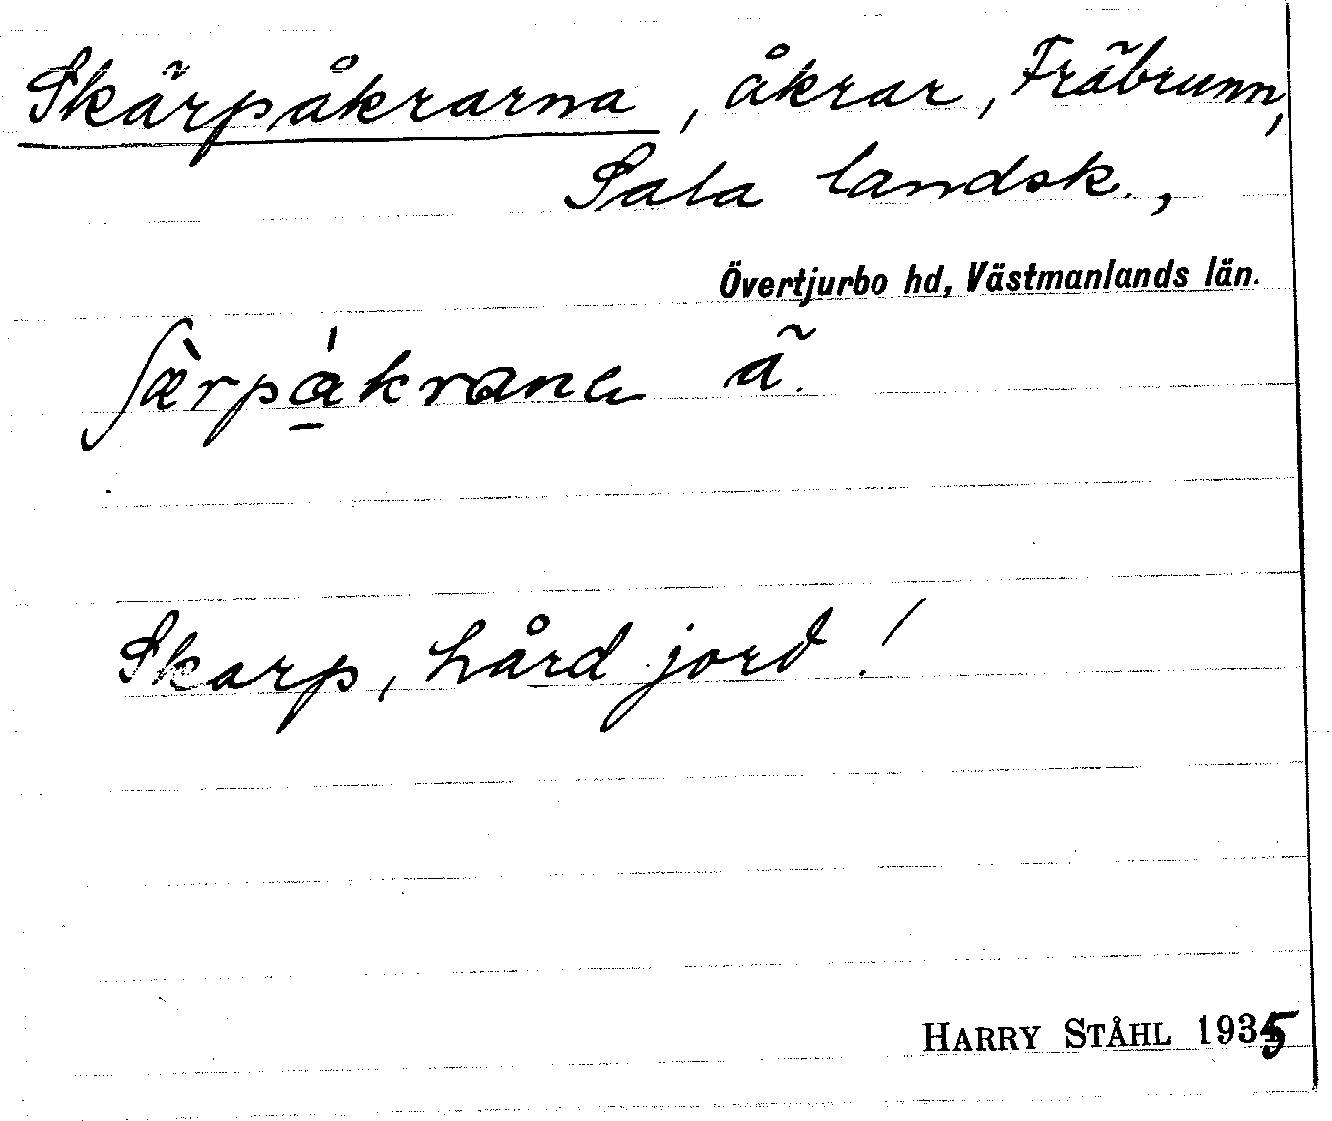 Skärpåkrarna, åkrar, Fräbrunn,
Sala landsk.,
Övertjurbo hd, Västmanlands län.
ʃæ̀rpǻ̱krana ã.
Skarp, hård jord!
HARRY STÅHL 1935